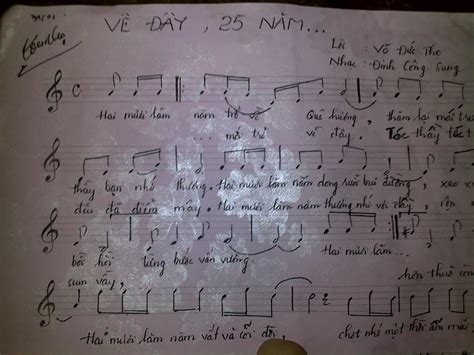 VỀ ĐÂY, 25 NĂM...
Lời : Võ Đức Thọ
Nhạc : Đinh Công Sung
Hai mươi lăm năm trở về Quê hương, thăm lại mái
... mà trở về đây. Tóc thầy
thầy bạn nhớ thương. Hai mươi lăm năm dong ruỗi bụi đường, xao
đều đã điểm mây. Hai mươi lăm năm thương nhớ vơi đầy,
bồi hồi từng bước vấn vương. Hai mươi lăm...
sum vầy,
Hai mươi lăm năm vất vả cõi đời, chợt nhớ một thời